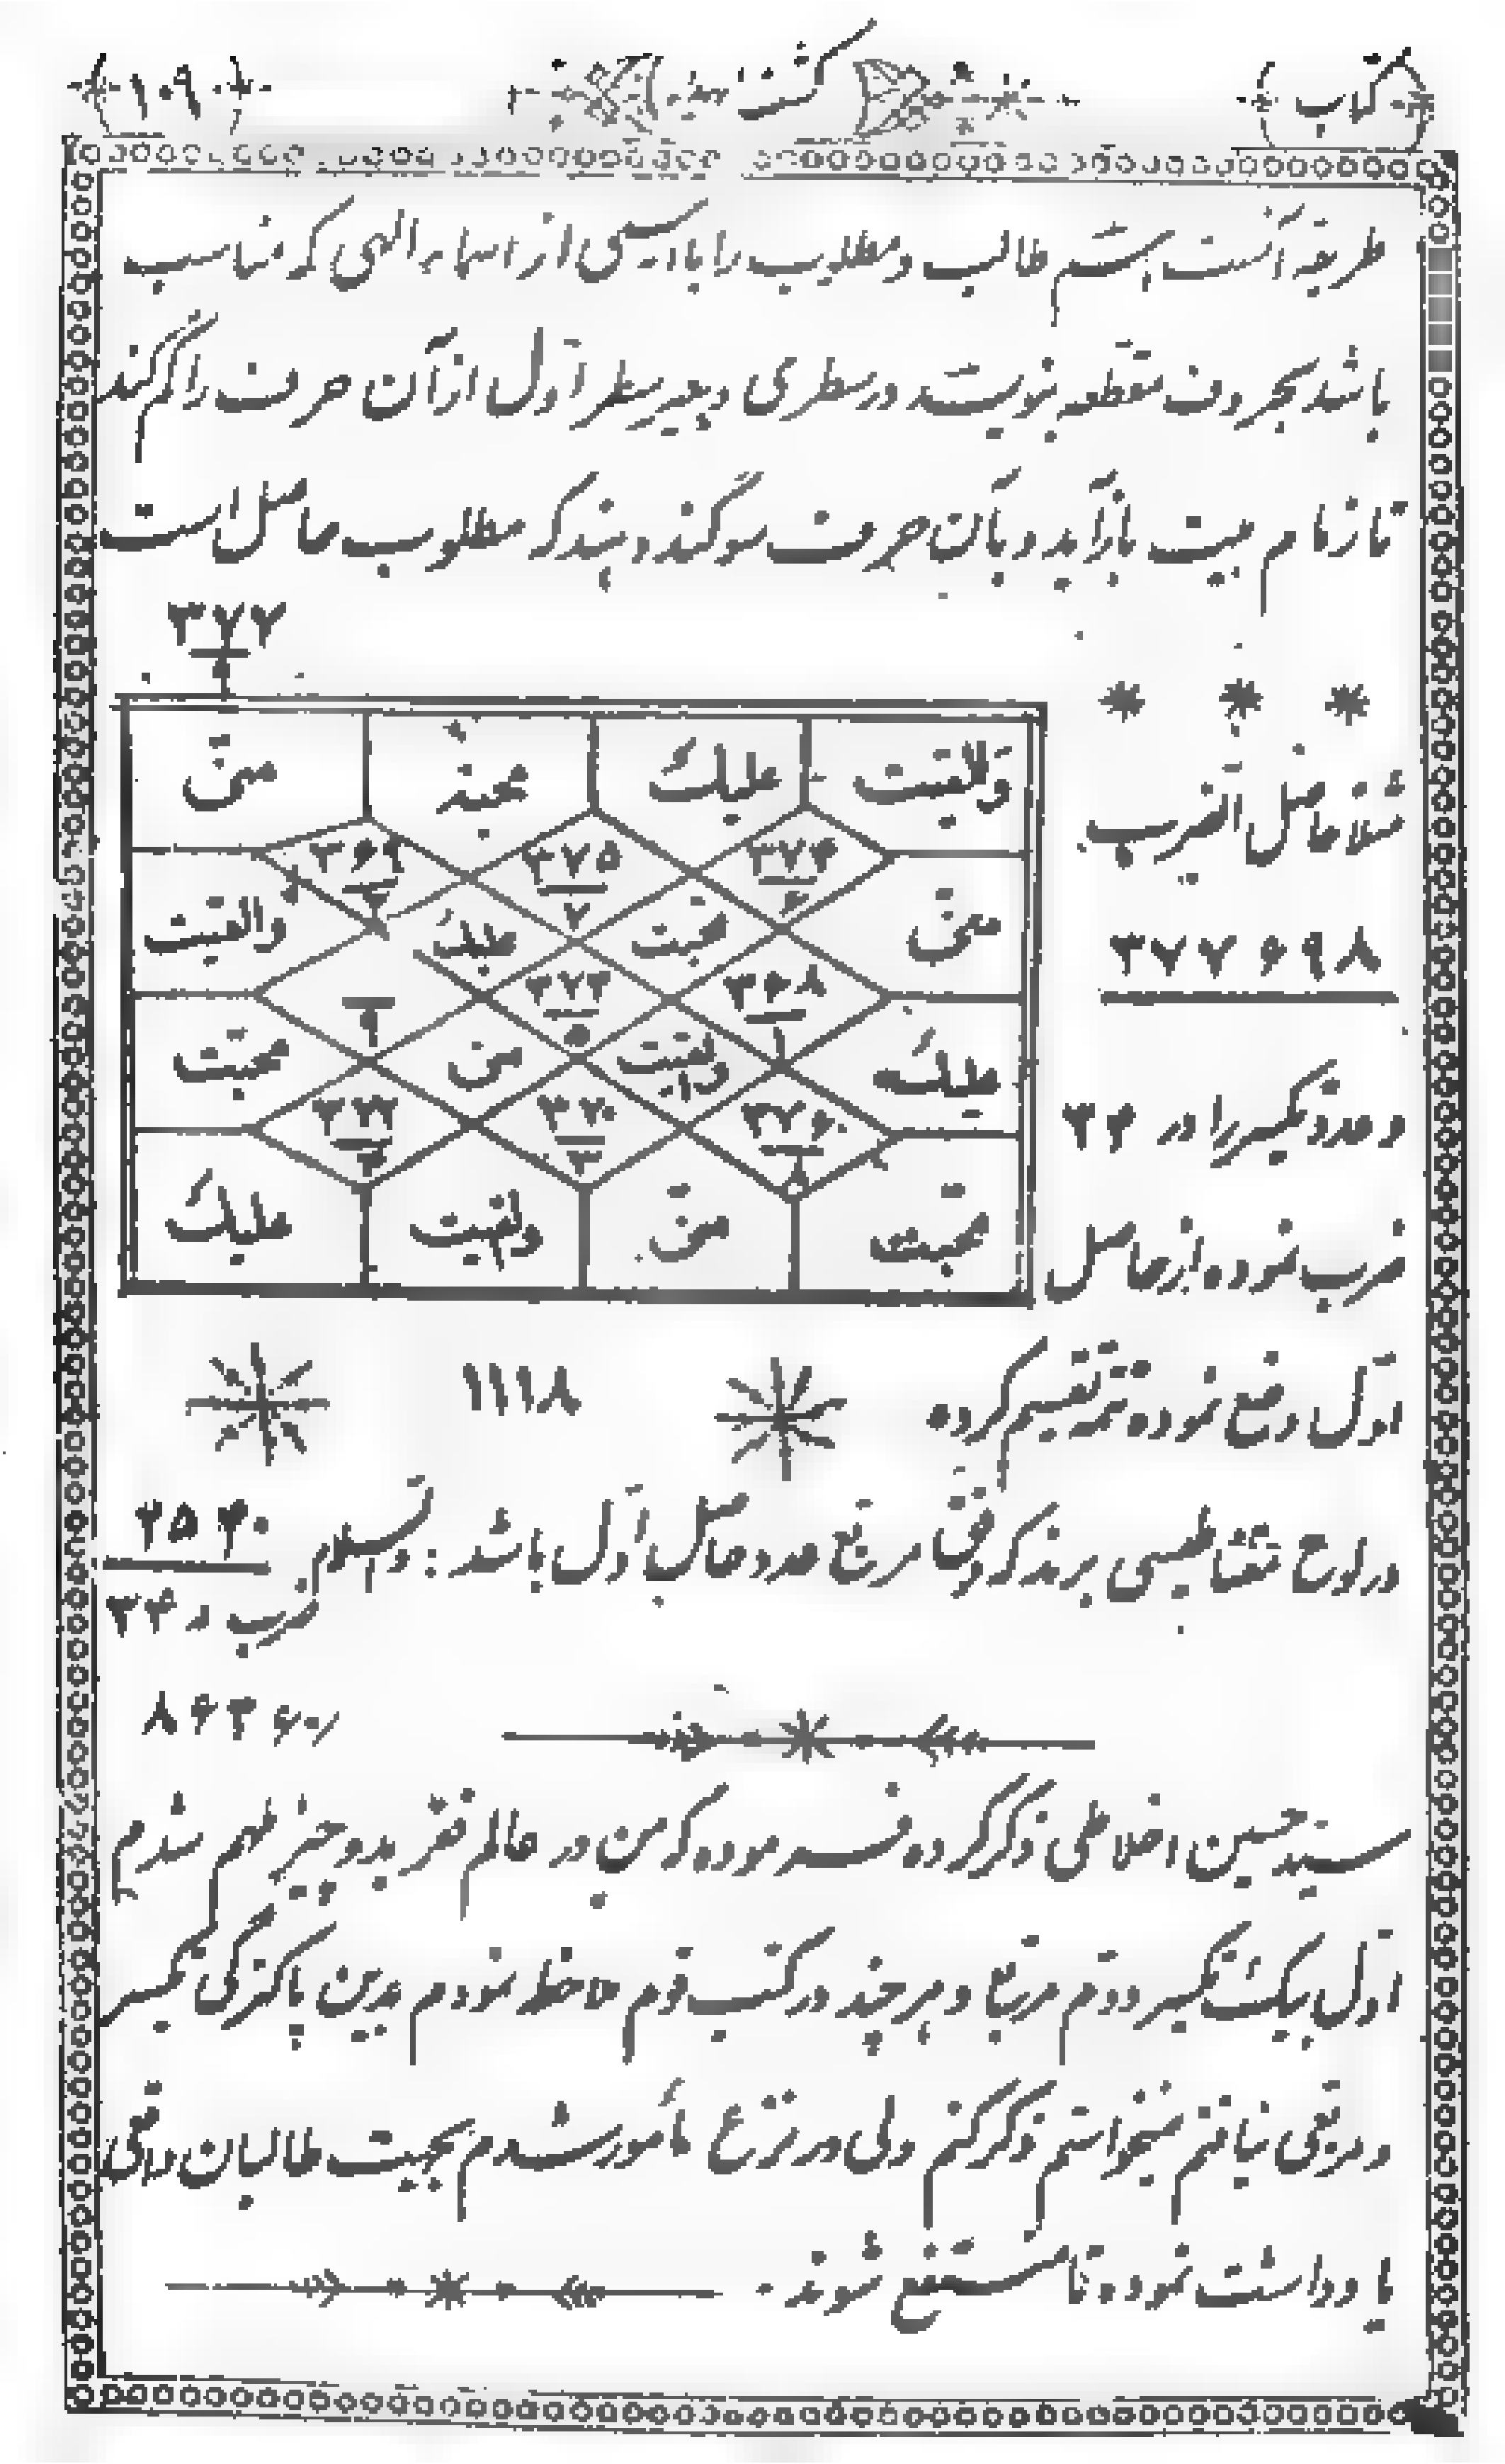 کتاب کشف ... ۱۰۹
طریقه آنست اسم طالب و مطلوب را با اسمی از اسماء الهی که مناسب
باشد بحروف متقطعه بنویسد در سطری و بعد سطر اول از آن حرف را کم کند
تا زمام بیت باز آید و بآن حرف سوگند دهند که مطلوب حاصل است
۳۷۷
۹
والقیت علیک محبة منی
۳۷۴ ۳۷۵ ۳۶۹
۶ ۷ ۲
منی محبت علیک والقیت
۳۶۸ ۳۷۳
۱ ۵ ۹
علیک والقیت منی محبت
۳۷۶ ۳۷۰
۸ ۳
محبت منی والقیت علیک
مثلا حاصل الضرب
۳۷۷۶۹۸
و عدد تکسیر را در ۳۴
ضرب نموده از حاصل
اول وضع نموده تتمه تقسیم کرده ۱۱۱۸
در لوح مقناطیسی برند که وفق مربع عدد حاصل اول باشد : والسلام ۲۵۴۰
ضرب در ۳۴
۸۶۳۶۰
سید حسین اخلاطی ذکر کرده فرموده که من در عالم فقر بدو چیز ملهم شدم
اول بیک تکسیر دوم مربع و هر چند در کتب قوم ملاحظه نمودم بدین پاکیزگی تکسیر
و مربعی نیافتم نمیخواستم ذکر کنم ولی مأمور شدم بجهت طالبان واقعی
یادداشت نموده تا منتفع شوند